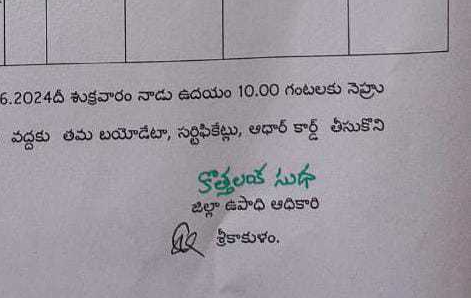 6.2024దీ శుక్రవారం నాడు ఉదయం 10.00 గంటలకు నెహ్రు
వద్దకు తమ బయోడేటా, సర్టిఫికేట్లు, ఆధార్ కార్డ్ తీసుకొని
కొత్తలంక సుధ
జిల్లా ఉపాధి అధికారి
శ్రీకాకుళం.